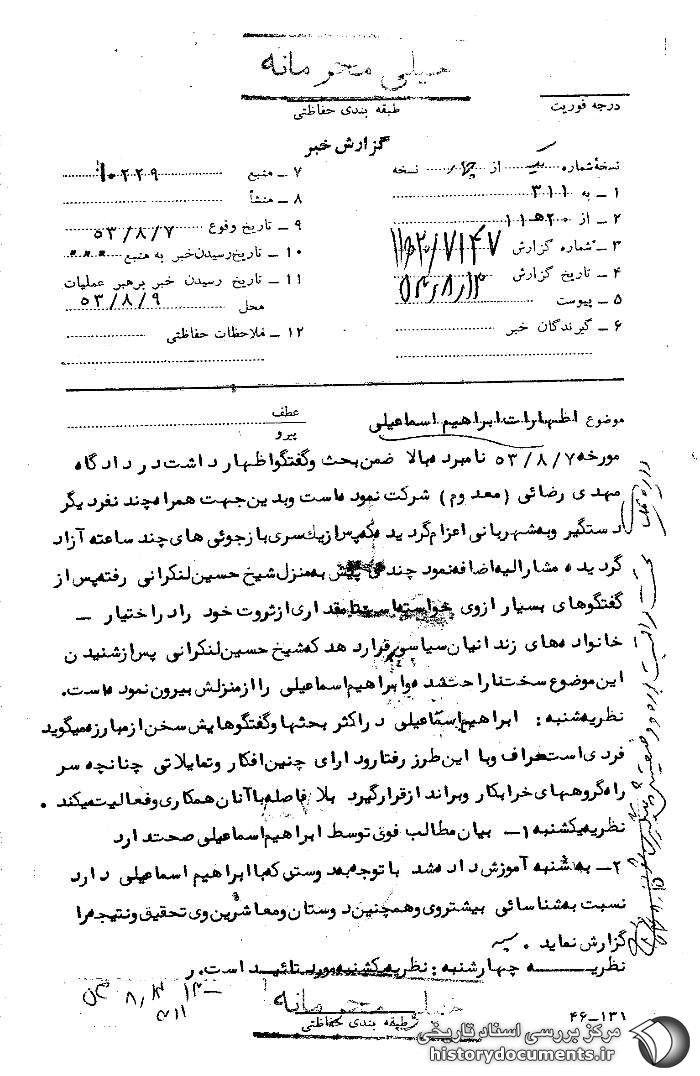 خیلی محرمانه
طبقه بندی حفاظتی
درجه فوریت
گزارش خبر
نسخهٔ شماره یک از چهار نسخه
۱ – به ۳۱۱
۲ – از ۲۰ه‍ ۱۱
۳ – شماره گزارش
۴ – تاریخ گزارش
۵ – پیوست
۶ – گیرندگان خبر
۷ – منبع ۱۰۲۲۹
۸ – منشأ
۹ – تاریخ وقوع ۵۳/۸/۷
۱۰ – تاریخ رسیدن خبر به منبع
۱۱ – تاریخ رسیدن خبر برهبر عملیات
محل ۵۳/۸/۹
۱۲ – ملاحظات حفاظتی
موضوع اظهارات ابراهیم اسماعیلی
عطف
پیرو
مورخه ۵۳/۸/۷ نامبرده بالا ضمن بحث وگفتگو اظهار داشت در دادگاه
مهدی رضائی (معدوم) شرکت نموده است وبدین جهت همراه چند نفر دیگر
دستگیر وبه شهربانی اعزام گردیده که پس از یک سری بازجوئی های چند ساعته آزاد
گردیده مشارالیه اضافه نمود چندی پیش به منزل شیخ حسین لنکرانی رفته پس از
گفتگوهای بسیار ازوی خواسته است تا مقداری از ثروت خود را در اختیار –
خانواده های زندانیان سیاسی قرار دهد که شیخ حسین لنکرانی پس از شنیدن
این موضوع سخت ناراحت شده وابراهیم اسماعیلی را از منزلش بیرون نموده است.
نظریه شنبه : ابراهیم اسماعیلی در اکثر بحثها وگفتگوهایش سخن از مبارزه میگوید
فردی است حراف وبا این طرز رفتار ودارای چنین افکار وتمایلاتی چنانچه سر
راه گروههای خرابکار وبرانداز قرار گیرد بلا فاصله باآنان همکاری وفعالیت میکند .
نظریه یکشنبه ۱– بیان مطالب فوق توسط ابراهیم اسماعیلی صحت دارد
۲– به شنبه آموزش داده شد با توجه به دوستی که با ابراهیم اسماعیلی دارد
نسبت به شناسائی بیشتر وی وهمچنین دوستان ومعاشرین وی تحقیق ونتیجه را
گزارش نماید .
نظریه چهارشنبه : نظریه یکشنبه مورد تائید است. ر
خیلی محرمانه
طبقه بندی حفاظتی
۴۶–۱۳۱
مرکز بررسی اسناد تاریخی
historydocuments.ir